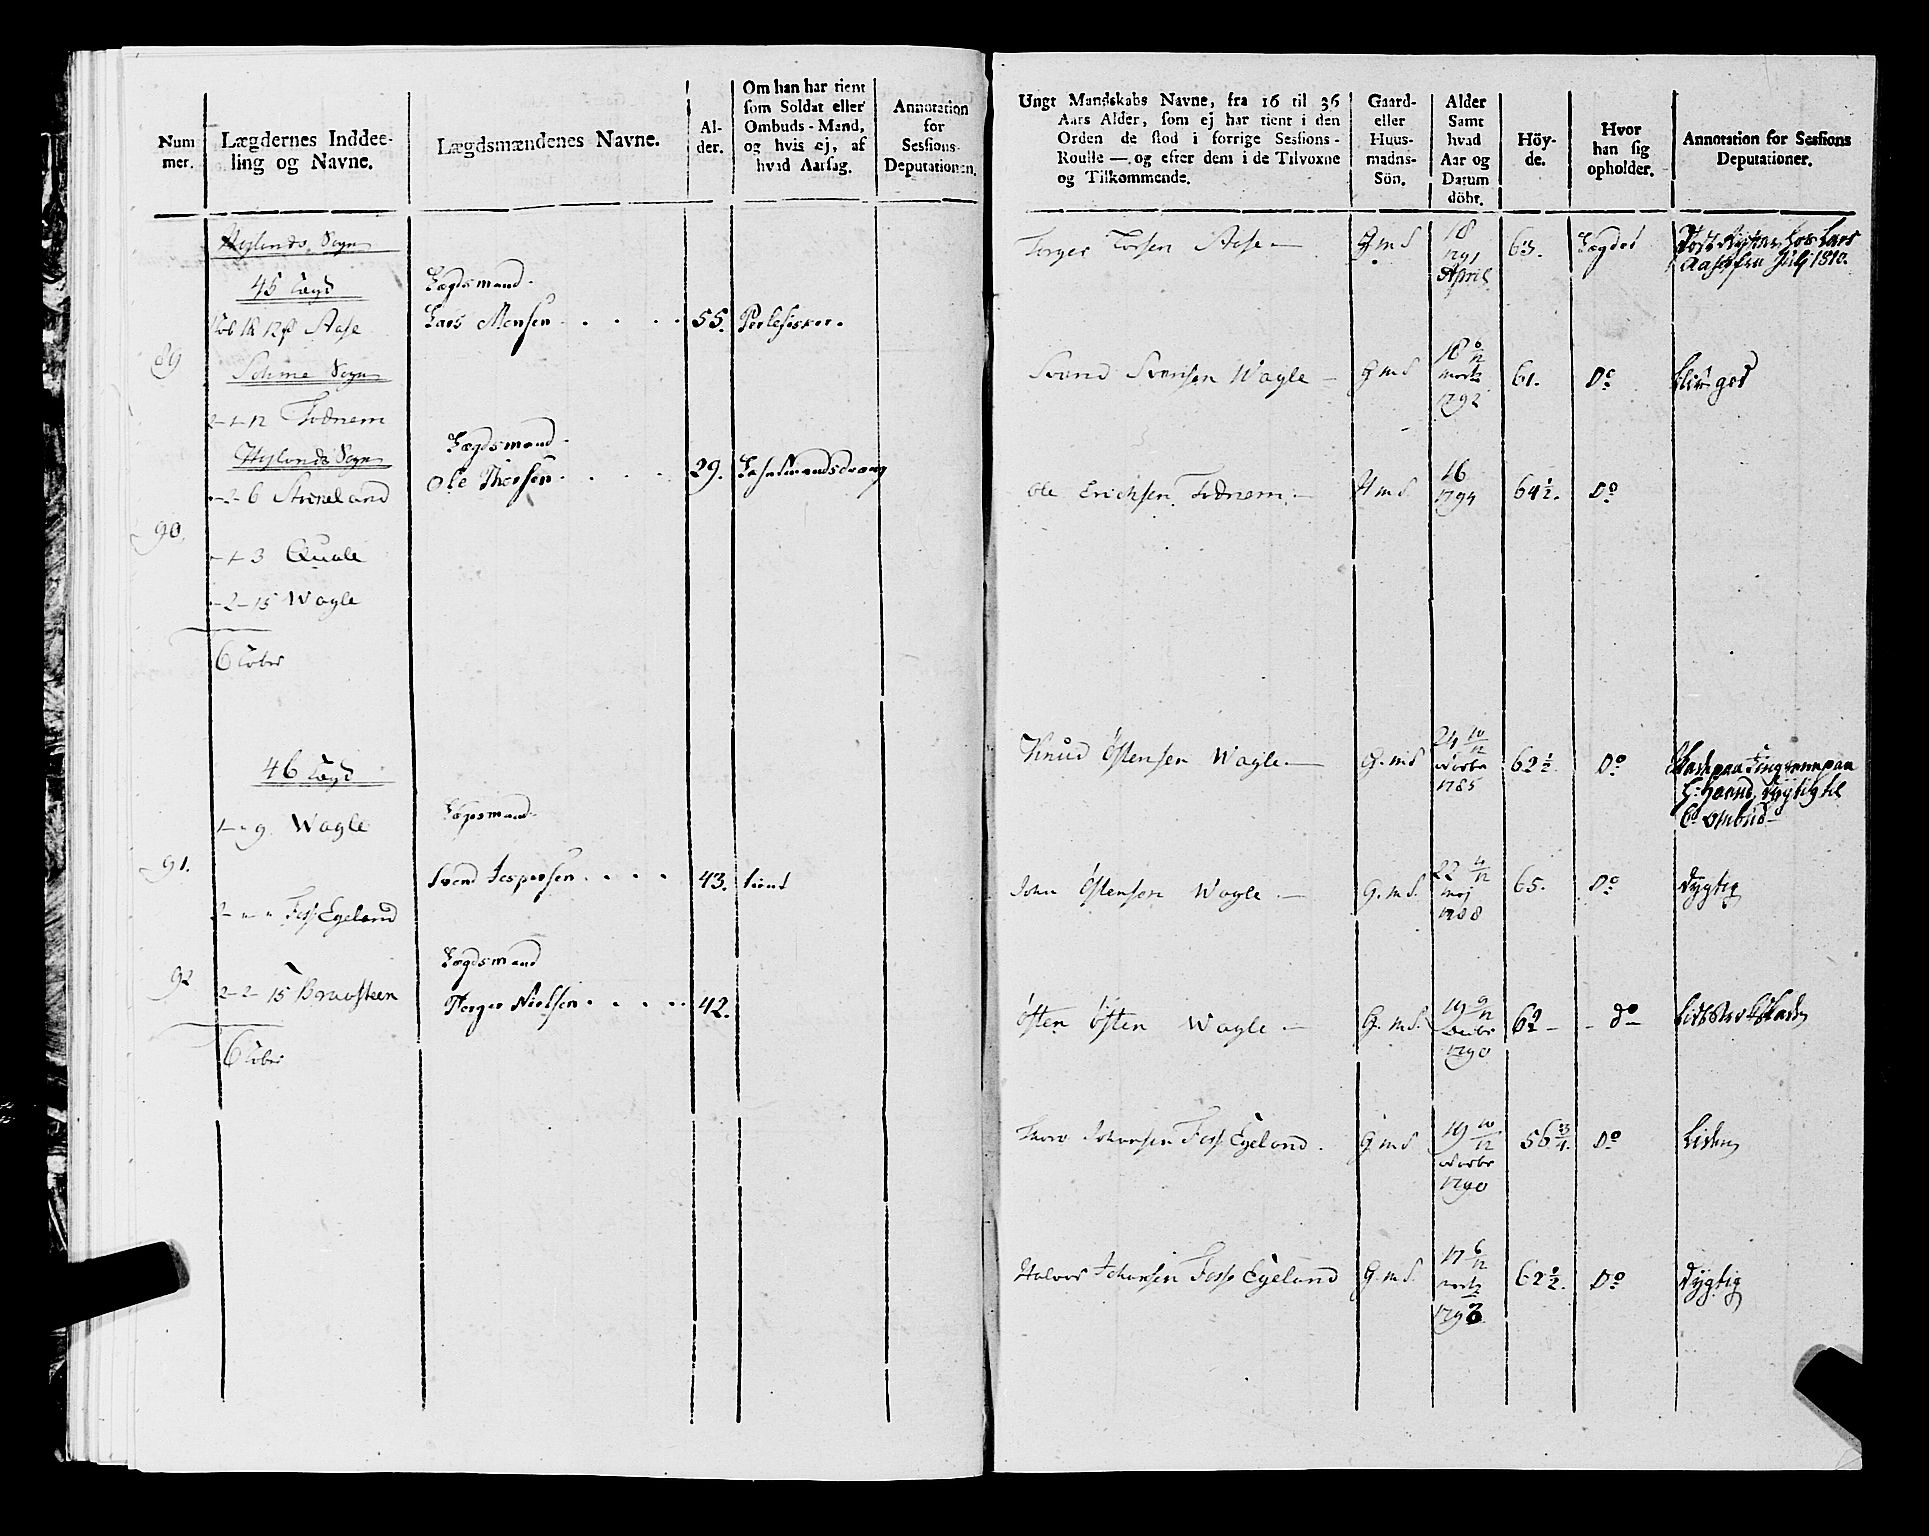 Num
mer.
Lægdernes Inddee-
ling og Navne.
Lægdsmændenes Navne.
Al-
der.
Om han har tient
som Soldat eller
Ombuds-Mand,
og hvis ej, af
hvad Aarsag.
Annotation
for
Sessions-
Deputationen.
Hylands Sogn
45 Lægd
Lægdsmand.
1 R 12 β Aase
Lars Monsen
55.
Perlefisker.
89
Sohme Sogn
2-1-12 Fodnem
Hylands Sogn
Lægdsmand.
-2-6
Ole Thorsen
29.
90.
-1-3 Quale
-2-15 Wagle
6 Løber
46 Lægd
1-"-9. Wagle
91.
Svend Jespersen
43.
tient
2-"-" Foss Egeland
Lægdsmand
92
2-2-15 Braasteen
Torger Nielsen
42.
6 Løber
Ungt Mandskabs Navne, fra 16 til 36
Aars Alder, som ej har tient i den
Orden de stod i forrige Sessions-
Roulle — og efter dem i de Tilvoxne
og Tilkommende.
Gaard-
eller
Huus-
mands-
Sön.
Alder
Samt
hvad
Aar og
Datum
döbt.
Höy-
de.
Hvor
han sig
opholder.
Annotation for Sessions
Deputationer.
Torger Torsen Aase — G m S
18
1791
April
63.
Lægdet
Juli 1810.
Svend Svensen Wagle — G m S
18
Marts
1792
61.
Do
Ole Erichsen Fodnem — H m S
16
1794
64½.
Do
Knud Östensen Wagle — G. m S
24 10/12
Novbr
1785
62½
Do
John Östensen Wagle — G. m S.
22 4/12
Maj
1788
65.
Do
dygtig
Östen Östen Wagle — G. m S.
19 9/12
Decbr
1790
62 —
do
Johansen Foss Egeland. G. m S
19 10/12
Novbr
1790
56¾.
Do
Liden
Halvor Johansen Foss Egeland G. m S.
17 6/12
Marts
62½.
Do
dygtig